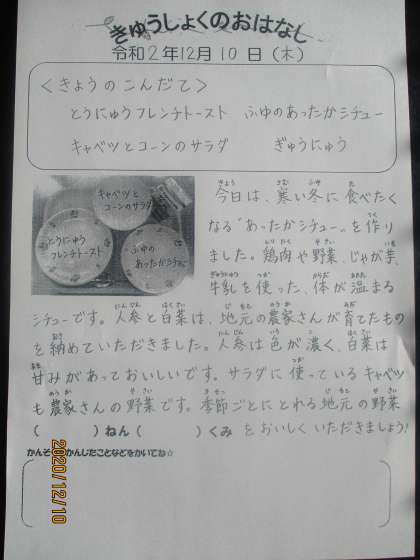 きゅうしょくのおはなし
令和2年12月10日（木）
＜きょうのこんだて＞
とうにゅうフレンチトースト　ふゆのあったかシチュー
キャベツとコーンのサラダ　ぎゅうにゅう
キャベツと
コーンのサラダ
とうにゅう
フレンチトースト
ふゆの
あったかシチュー
今日は、寒い冬に食べたく
なる"あったかシチュー"を作り
ました。鶏肉や野菜、じゃが芋、
牛乳を使った、体が温まる
シチューです。人参と白菜は、地元の農家さんが育てたもの
を納めていただきました。人参は色が濃く、白菜は
甘みがあっておいしいです。サラダに使っているキャベツ
も農家さんの野菜です。季節ごとにとれる地元の野菜
をおいしくいただきましょう!
（　　　）ねん（　　　）くみ
かんそ　かんじたことなどをかいてね☆
2020/12/10